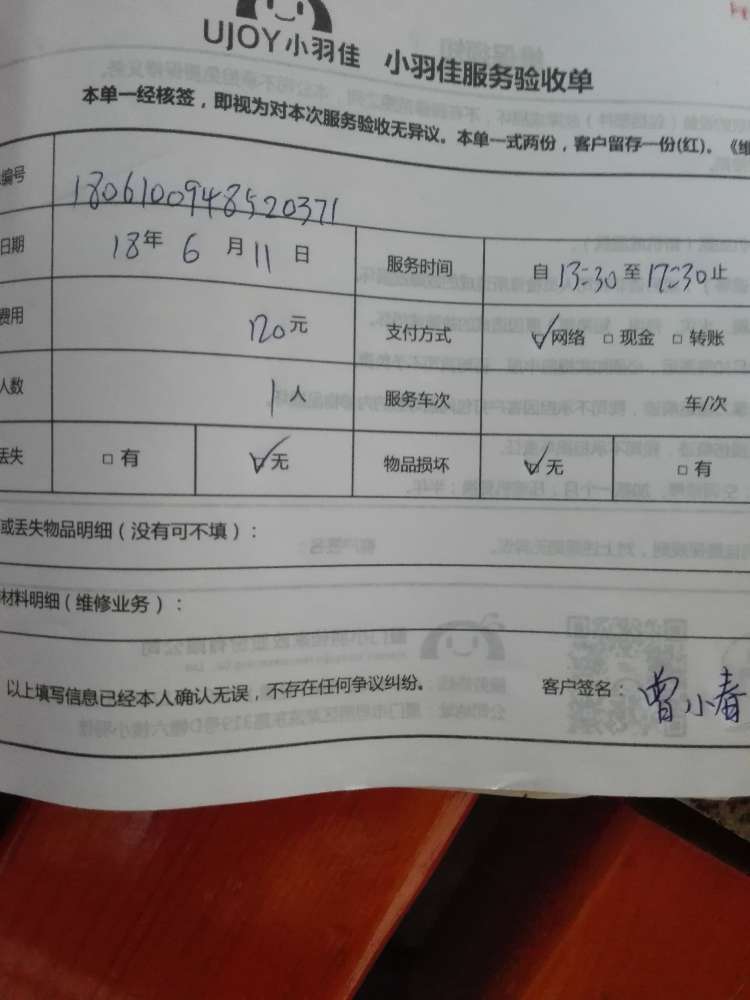 UJOY小羽佳 小羽佳服务验收单
本单一经核签，即视为对本次服务验收无异议。本单一式两份，客户留存一份(红)。《维
编号 180610094852037​1
日期 18年 6 月 11 日 服务时间 自 13:30 至 17:30 止
费用 120 元 支付方式 ☑网络 □ 现金 □ 转账
人数 1 人 服务车次 车/次
丢失 □ 有 ☑无 物品损坏 ☑无 □ 有
或丢失物品明细（没有可不填）：
材料明细（维修业务）：
以上填写信息已经本人确认无误，不存在任何争议纠纷。 客户签名：曾小春